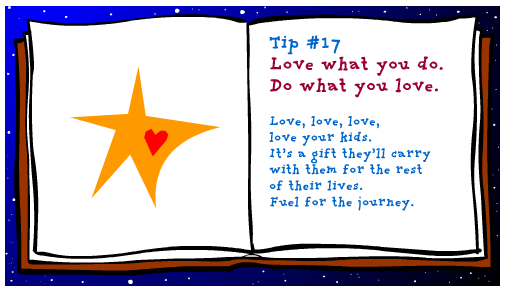 Tip #17
Love what you do.
Do what you love.
Love, love, love,
love your kids.
It's a gift they'll carry
with them for the rest
of their lives.
Fuel for the journey.